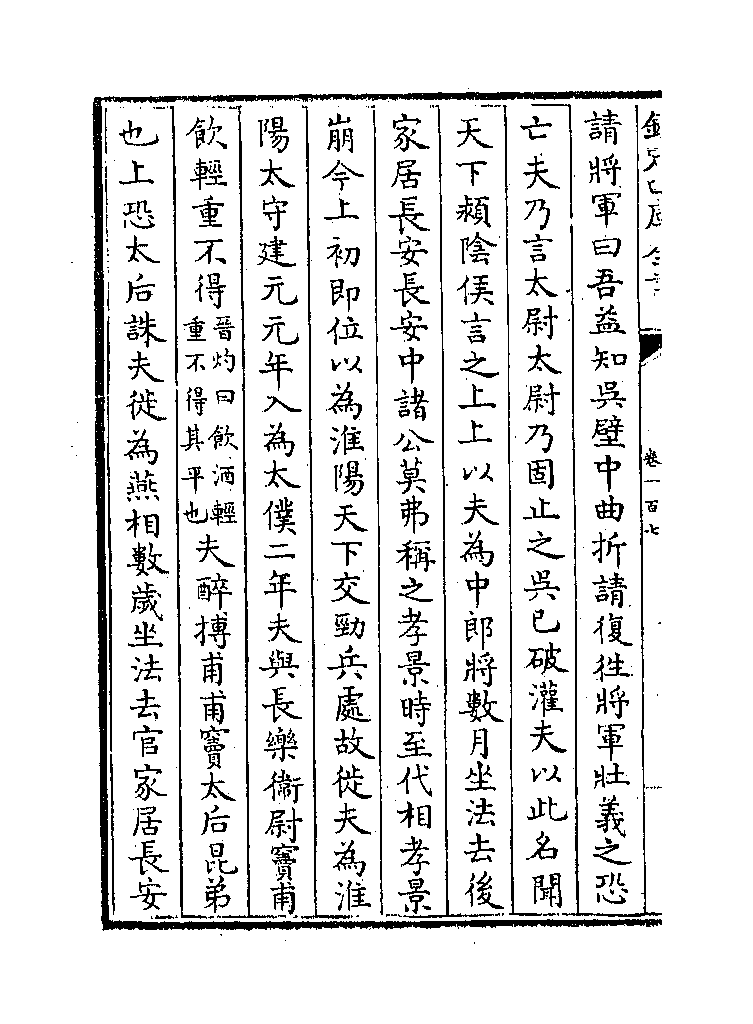 欽定四庫全書
卷一百七
請將軍曰吾益知吳壁中曲折請復徃將軍壯義之恐
亡夫乃言太尉太尉乃固止之吳已破灌夫以此名聞
天下潁陰侯言之上上以夫為中郎將數月坐法去後
家居長安長安中諸公莫弗稱之孝景時至代相孝景
崩今上初即位以為淮陽天下交勁兵處故徙夫為淮
陽太守建元元年入為太僕二年夫與長樂衞尉竇甫
飲輕重不得晉灼曰飲酒輕重不得其平也夫醉搏甫甫竇太后昆弟
也上恐太后誅夫徙為燕相數歲坐法去官家居長安